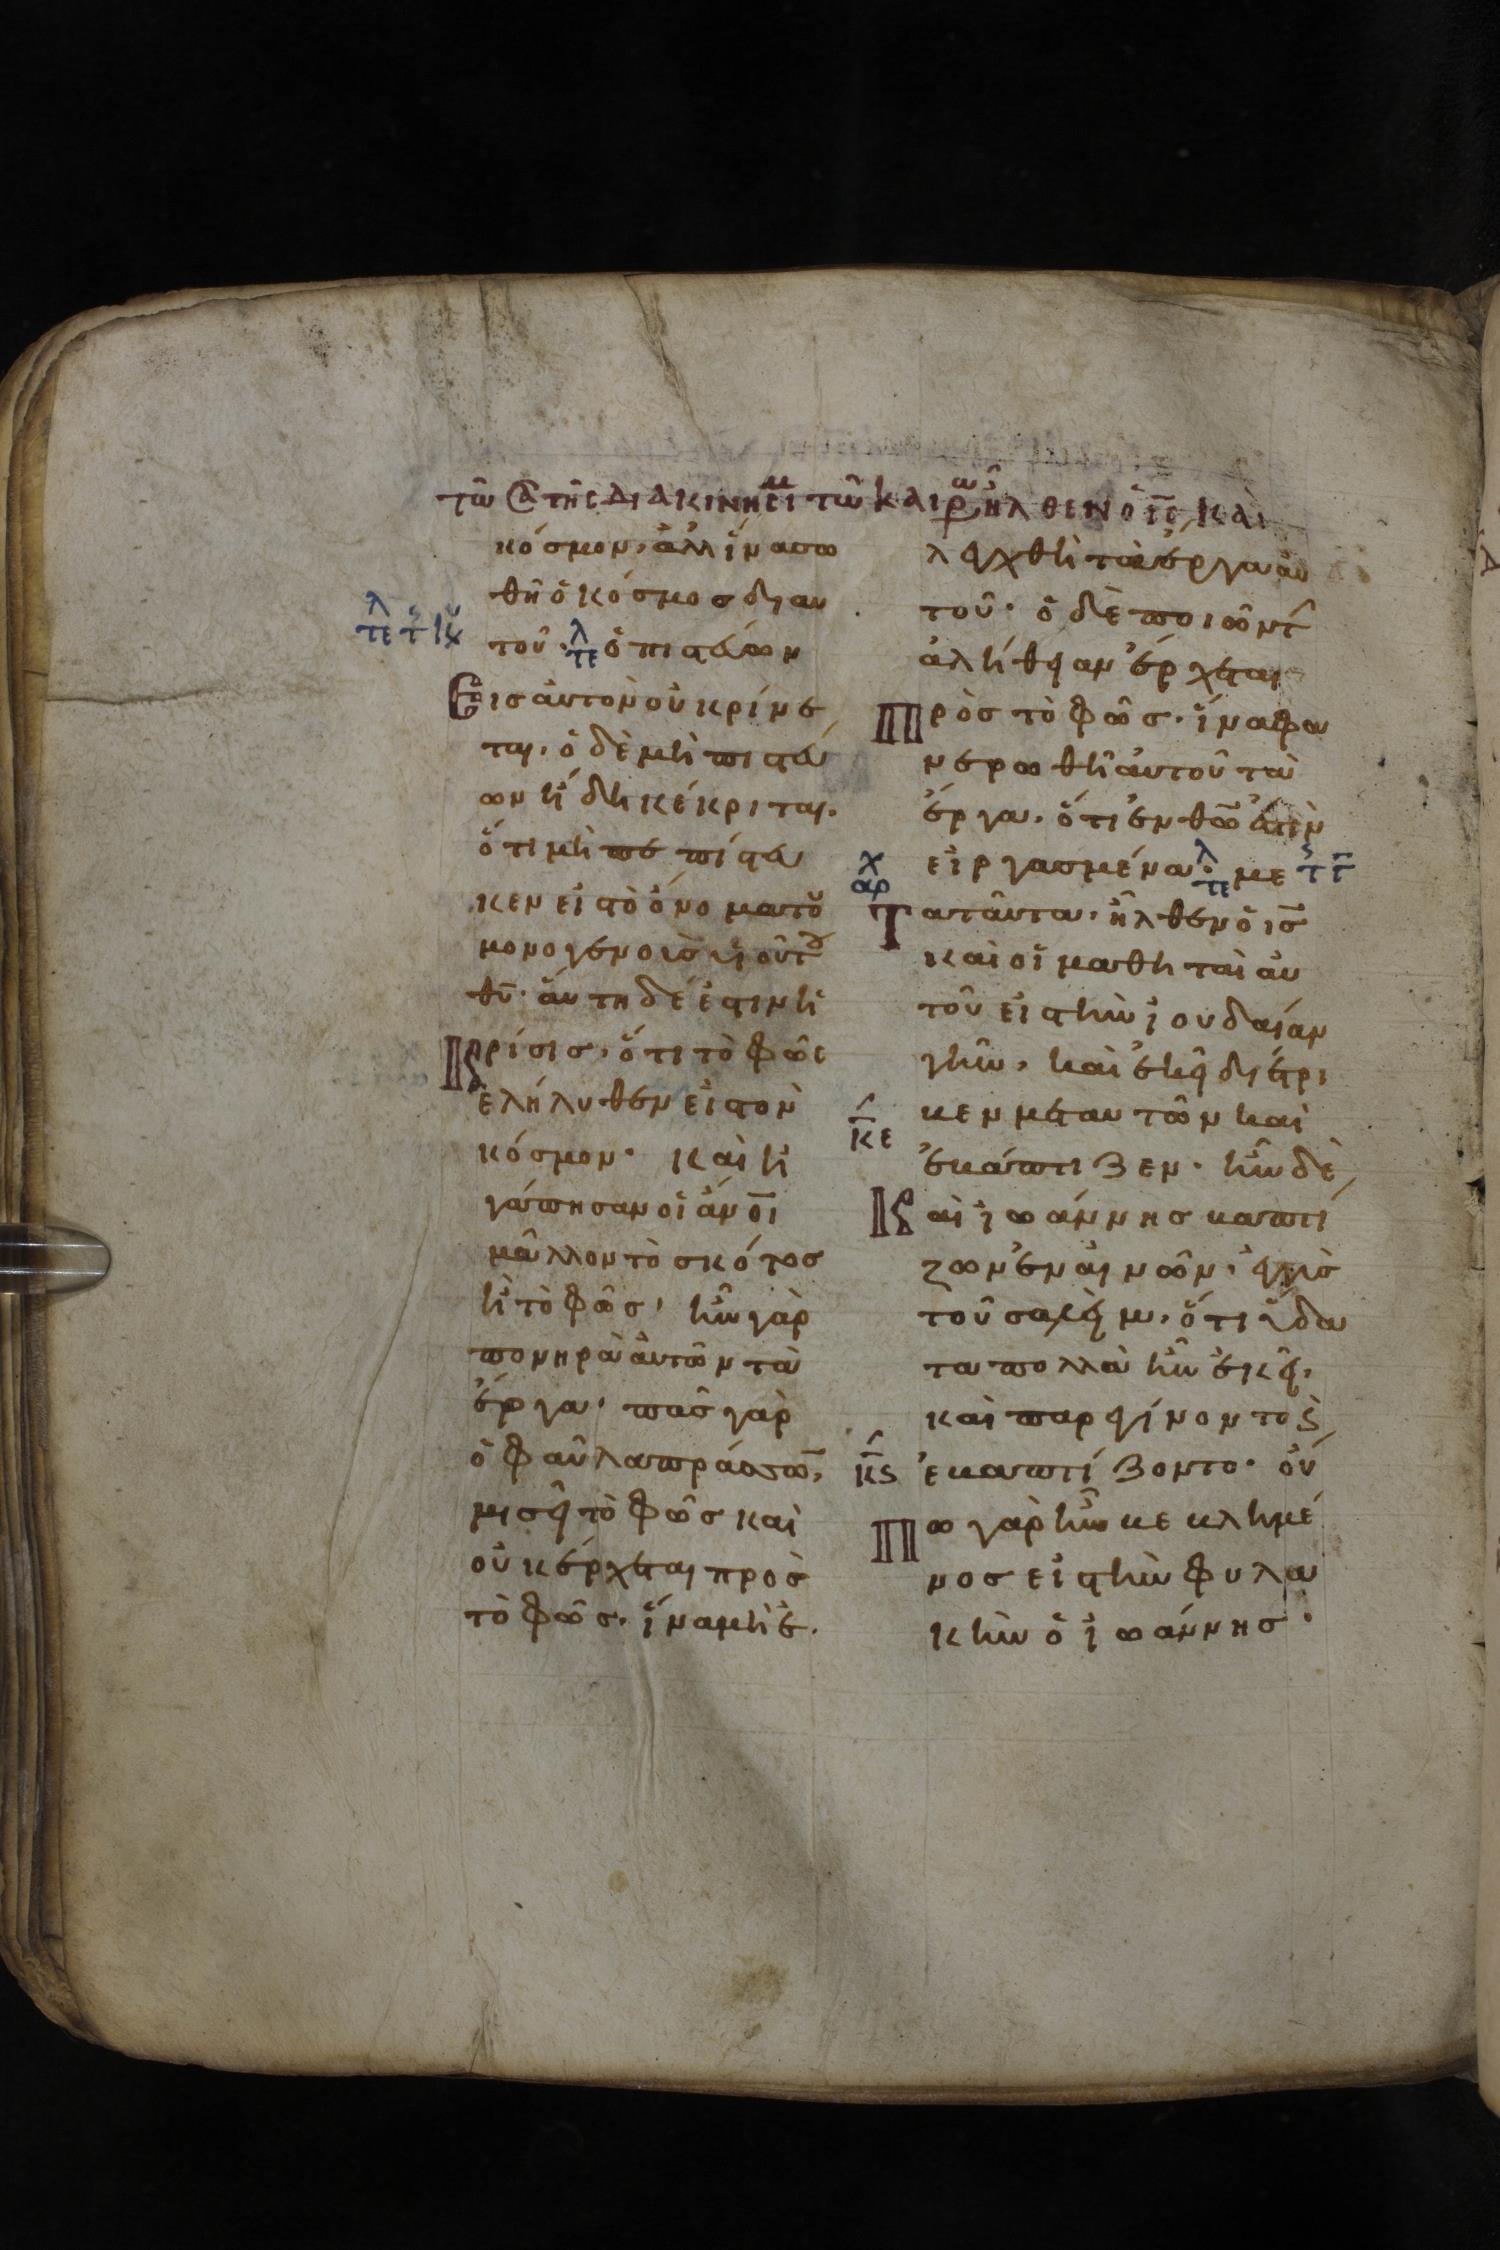 τῶ σα τῆς διακινησίμ τῶ καιρῶ ἦλθεν ὁ ις καὶ
κόσμον, ἀλλ ἵνα σω
θῆ ὁ κόσμος δι αυ
τοῦ· τε λ ὁ πιστεύων
Εἰς ἀυτὸν οὐ κρίνε
ται, ὁ δὲ μὴ πιστεύ
ων ἤδη κέκριται.
ὅτι μὴ πεπίστευ
κεν εἰς τὸ ὄνομα τοῦ
μονογενοὺς υἱοῦ τοῦ
θυ· ἄυτη δέ ἐστιν ἡ
Κρίσις, ὅτι τὸ φῶς
ἐλήλυθεν εἰς τὸν
κόσμον· καὶ ἠ
γάπησαν οἱ ἄνοι
μᾶλλον τὸ σκότος
ἢ τὸ φῶς, ἦν γὰρ
πονηρὰ ἀυτῶν τὰ
ἔργα, πᾶς γὰρ
ὁ φαῦλα πράσσω̅,
μισεῖ τὸ φῶς καὶ
οὐκ έρχεται πρὸς
τὸ φῶς, ἵνα μὴ ἐ
λεγχθῆ τὰ έργα ἀυ
τοῦ· ὁ δὲ ποιῶν τ
ἀλήθειαν ἔρχεται
Πρὸς τὸ φῶς, ἵνα φα
νερωθῆ ἀυτοῦ τὰ
έργα, ὅτι ἐν θω ἐστὶν
εἰργασμένα· τε λ με τ τ
χ αρ
Τα ταῦτα, ἦλθεν ὁ ις
καὶ οἱ μαθηταὶ ἀυ
τοῦ εἰς τὴν ἰουδαίαν
γῆν, καὶ ἐκεῖ διέτρι
κε
βεν μετ αυτῶν καὶ
ἐβάπτιζεν· ἦν δὲ
Καὶ ἰωάννης βαπτί
ζων ἐν αἰνῶν, ἐγγὺς
τοῦ σαλεὶμ, ὅτι ὕδα
τα πολλὰ ἦν ἐκεῖ,
καὶ παρεγίνοντο ϛ
κϛ
ἐβαπτίζοντο· οὔ
Πω γὰρ ἦν βεβλημέ
νος εἰς τὴν φυλα
κὴν ὁ ἰωάννης·